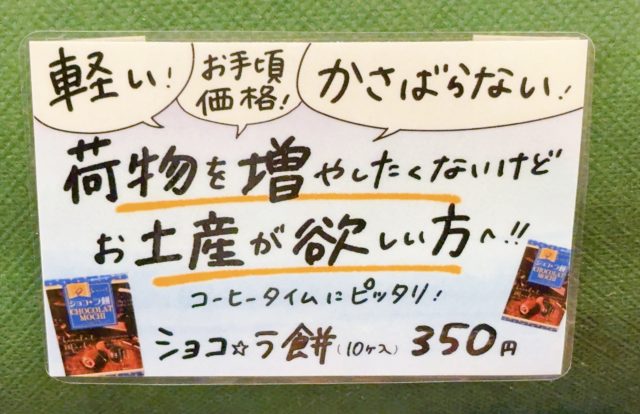 軽い!
お手頃
価格!
かさばらない!
荷物を増やしたくないけど
お土産が欲しい方へ!!
コーヒータイムにピッタリ!
ショコ☆ラ餅(10ヶ入) 350円
ショコ・ラ餅
CHOCOLAT
MOCHI
ショコ・ラ餅
CHOCOLAT
MOCHI